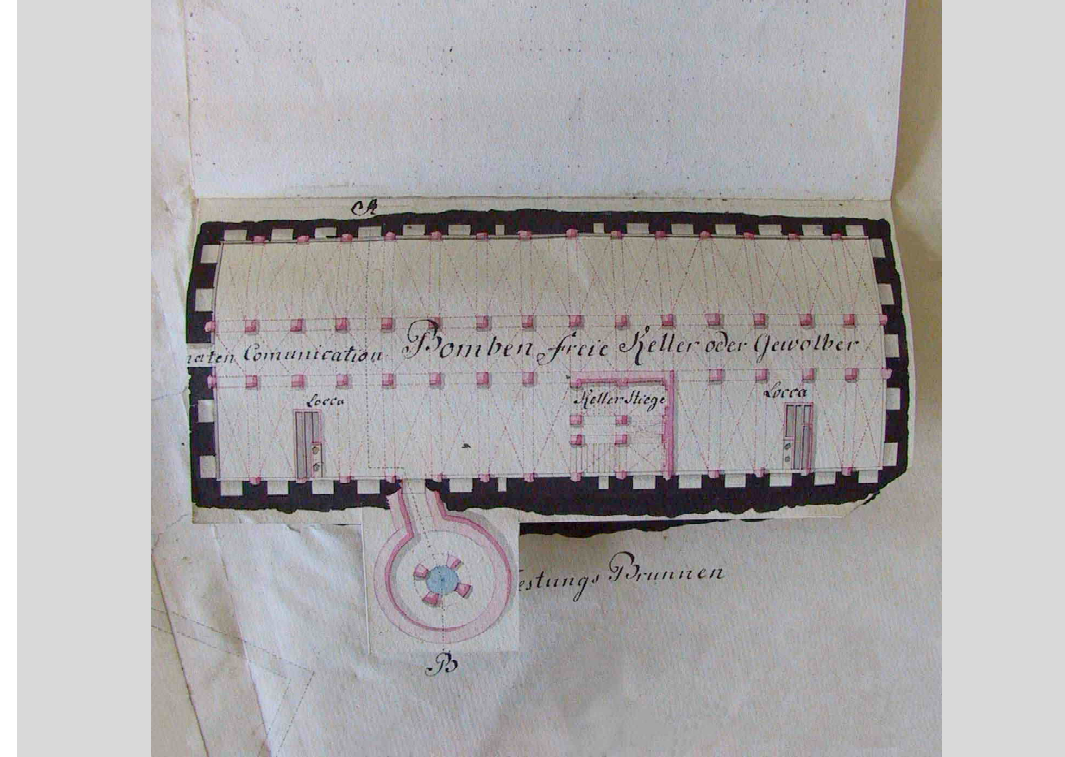 A
Comunication Bomben freie Keller oder Gewölber
Locca
Keller Stiege
Locca
estungs Brunnen
B